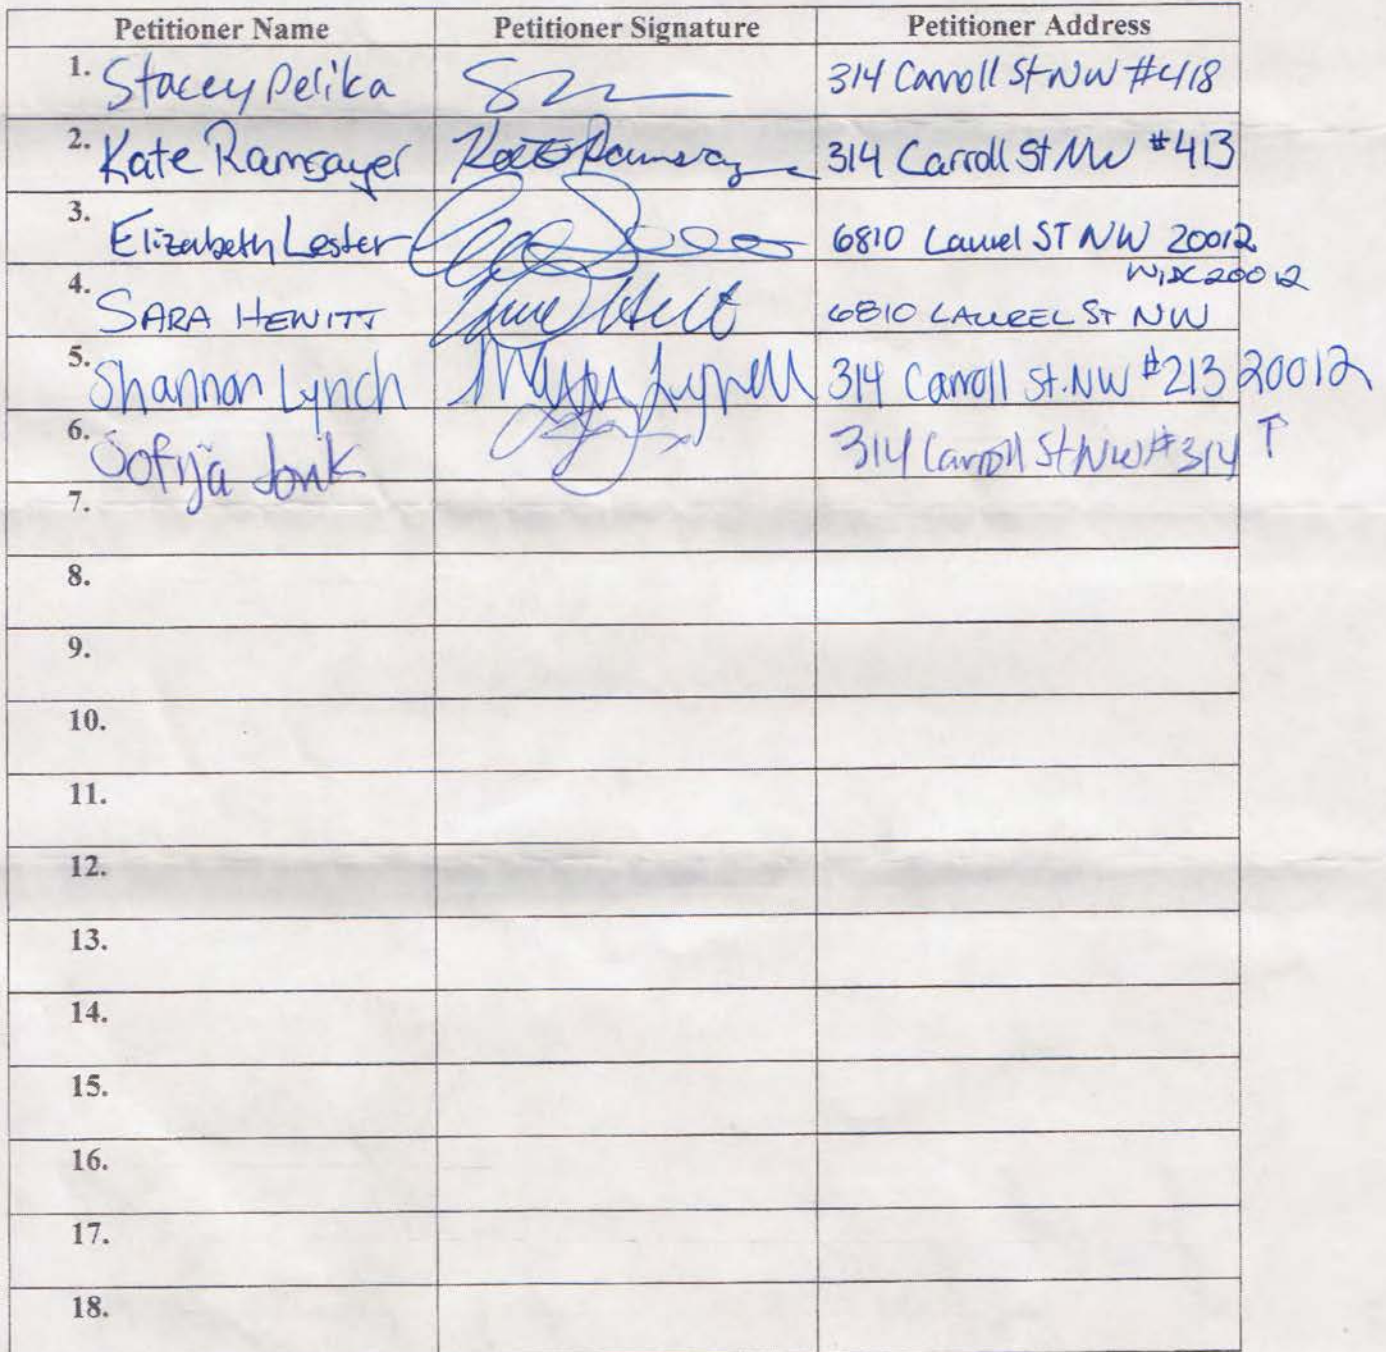 Petitioner Name Petitioner Signature Petitioner Address
1. Stacey Pelika 314 Carroll St NW #418
2. Kate Ramsayer Kate Ramsay 314 Carroll St NW #413
3. Elizabeth Lester 6810 Laurel ST NW 20012
WDC 20012
4. SARA HEWITT 6810 LAUREL ST NW
5. Shannon Lynch 314 Carroll St. NW #213 20012
6. Sofija 314 Carroll St NW #314 ↑
7.
8.
9.
10.
11.
12.
13.
14.
15.
16.
17.
18.